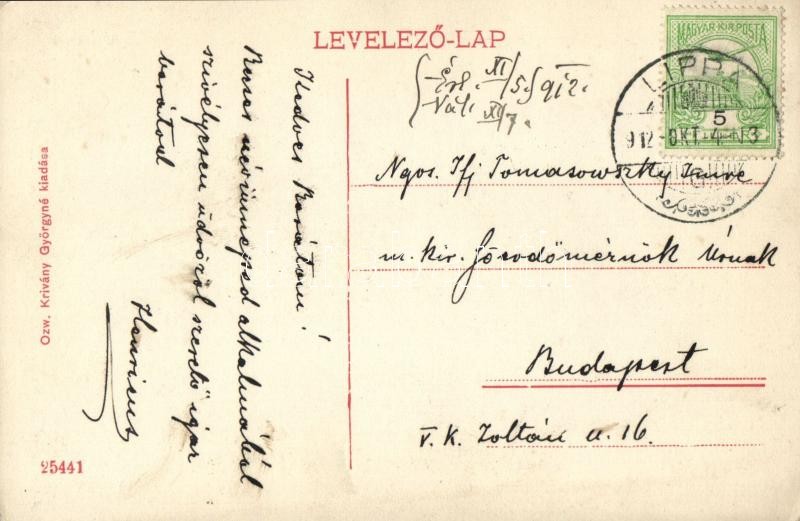 LEVELEZŐ-LAP
MAGYAR·KIR·POSTA
LIPPA
5
912 OKT. 4
Érk. XI/5. 912.
Vál. XI/7.
Ngos. Ifj Tomasowszky Imre
m. kir. erdőmérnök Úrnak
Budapest
V. k. Zoltán u. 16.
Kedves Barátom!
Becses névünneped alkalmából
szivélyesen üdvözöl szerető igaz
barátod
Henricus
Özv. Kriványi Györgyné kiadása
25441